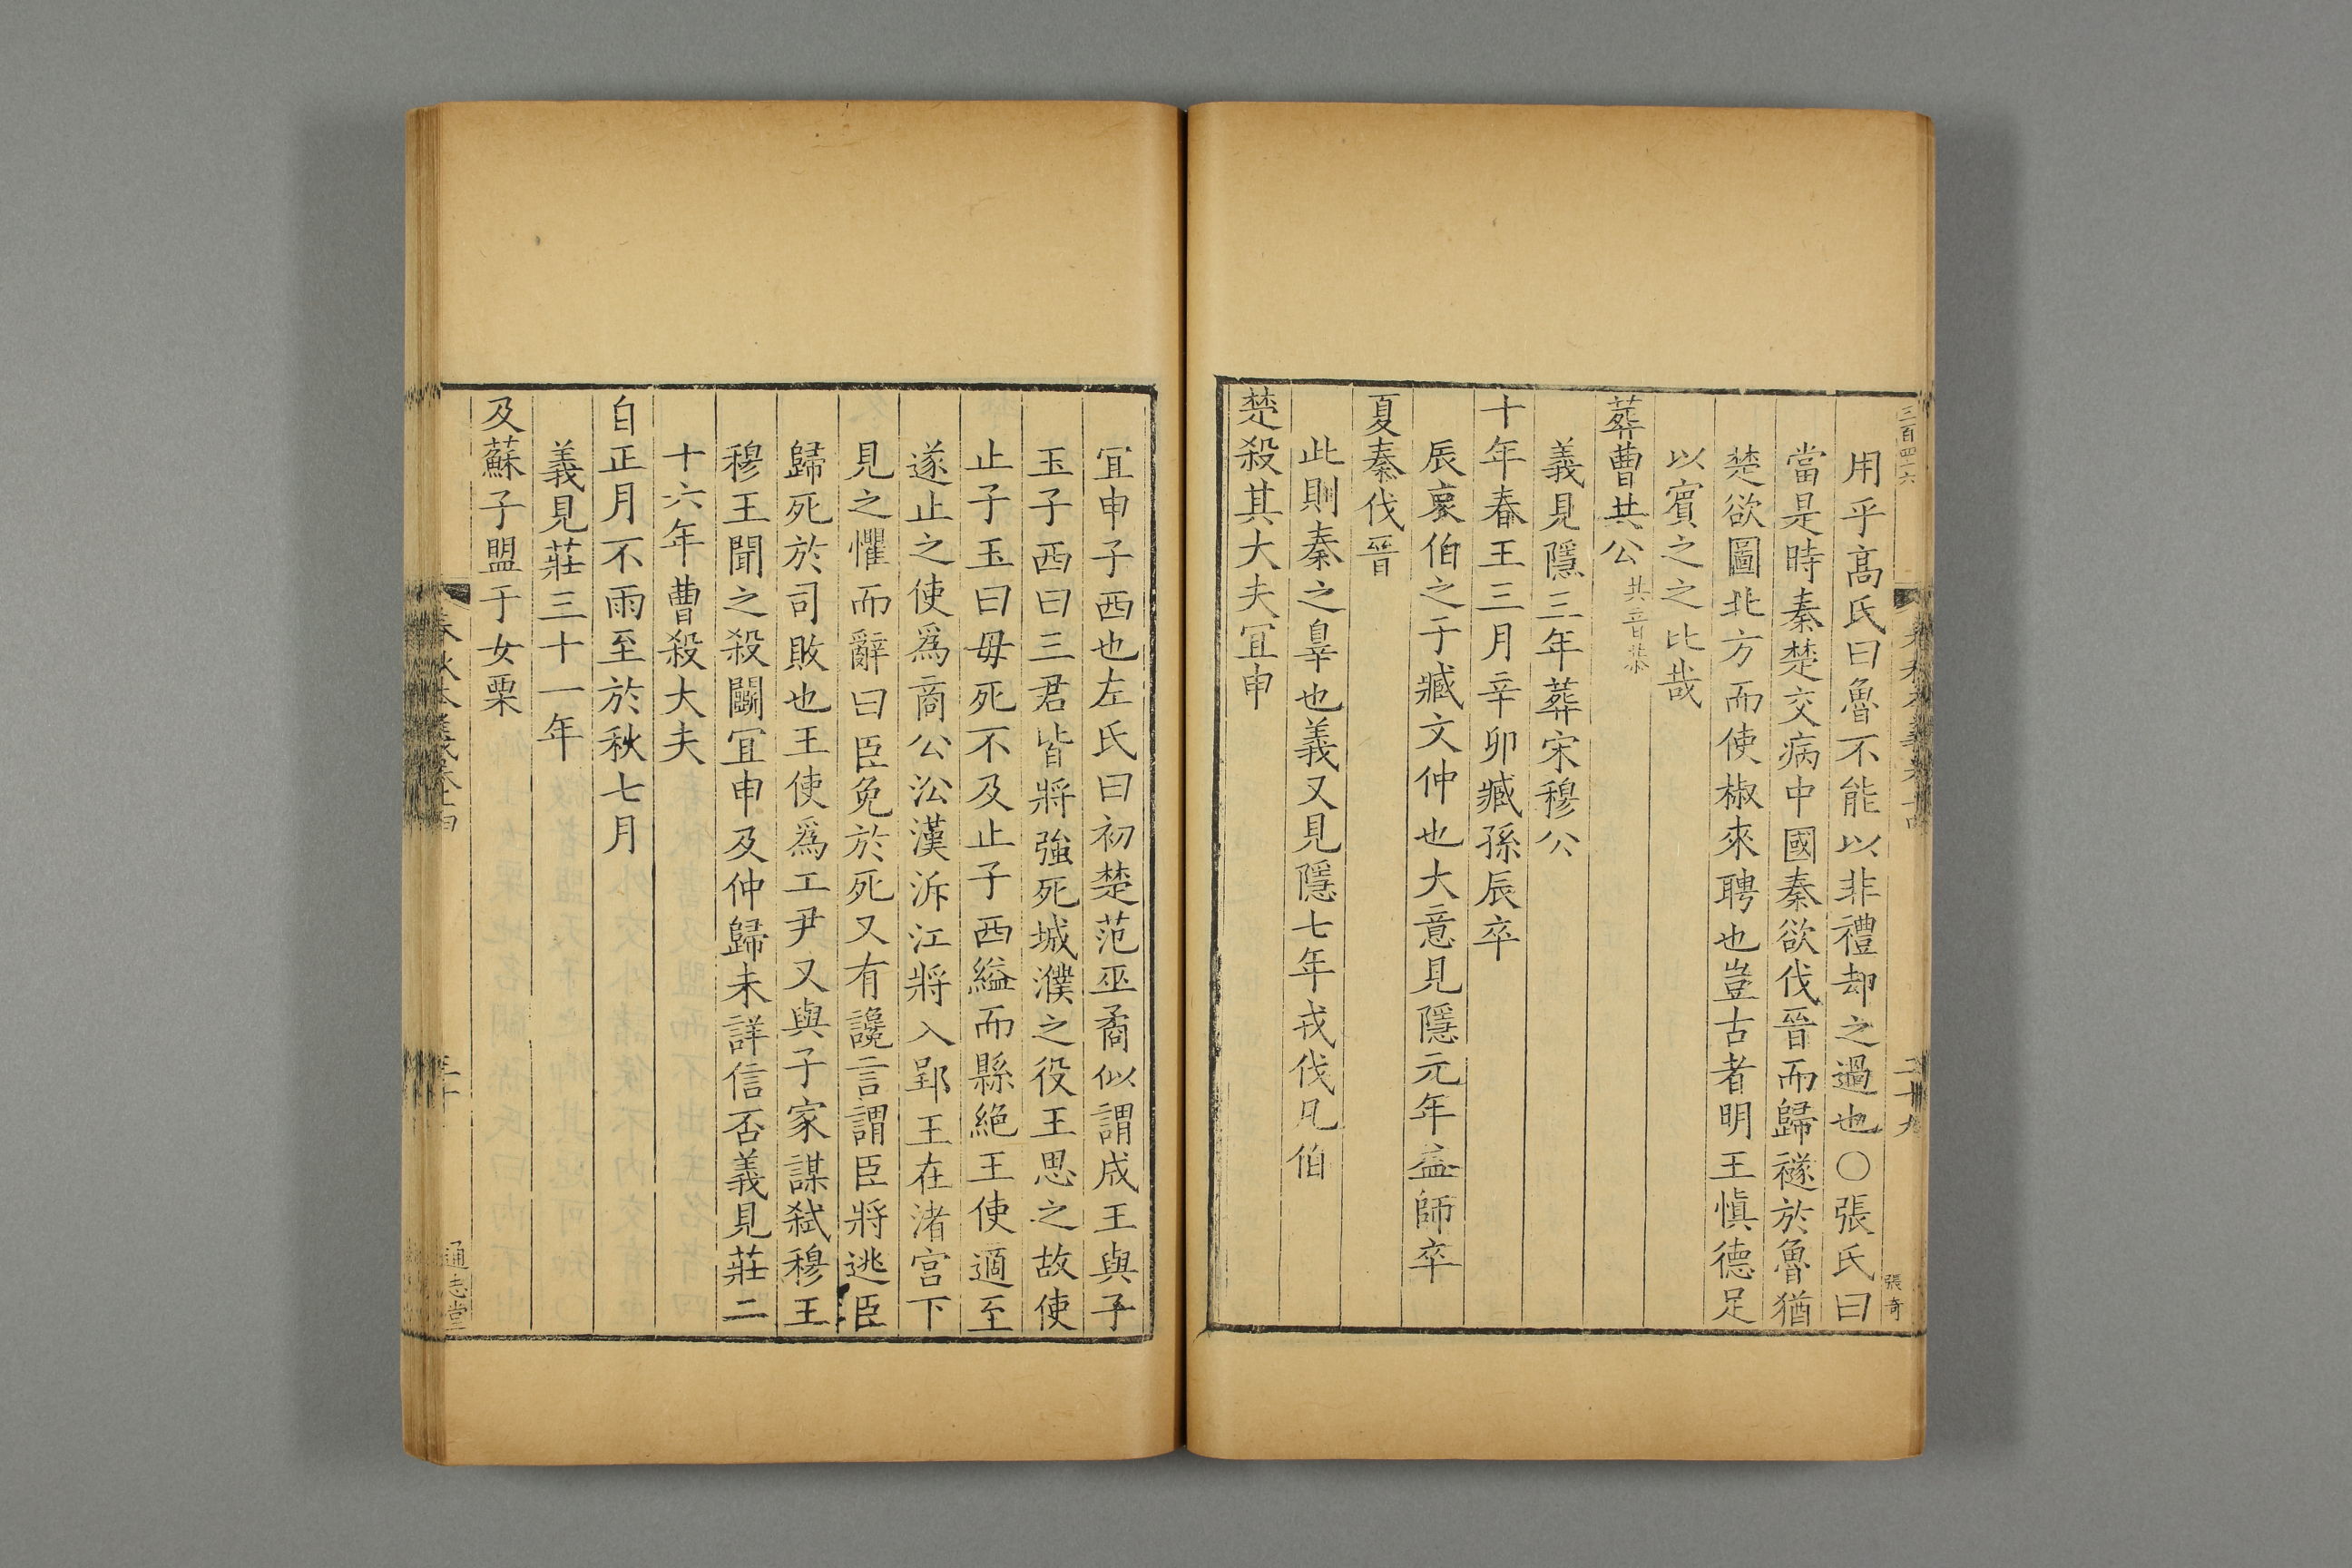 三百四十六
春秋本義卷十四
二十九
張奇
用乎高氏曰魯不能以非禮却之過也〇張氏曰
當是時秦楚交病中國秦欲伐晉而歸襚於魯猶
楚欲圖北方而使椒來聘也豈古者明王慎德足
以賓之之比哉
葬曹共公共音恭
義見隱三年葬宋穆公
十年春王三月辛卯臧孫辰卒
辰哀伯之子臧文仲也大意見隱元年益師卒
夏秦伐晉
此則秦之辠也義又見隱七年戎伐凡伯
楚殺其大夫宜申
宜申子西也左氏曰初楚范巫矞似謂成王與子
玉子西曰三君皆將強死城濮之役王思之故使
止子玉曰毋死不及止子西縊而縣絶王使適至
遂止之使爲商公沿漢泝江將入郢王在渚宮下
見之懼而辭曰臣免於死又有讒言謂臣將逃臣
歸死於司敗也王使爲工尹又與子家謀弑穆王
穆王聞之殺鬭宜申及仲歸未詳信否義見莊二
十六年曹殺大夫
自正月不雨至於秋七月
義見莊三十一年
及蘇子盟于女栗
春秋本義卷十四
三十
通志堂